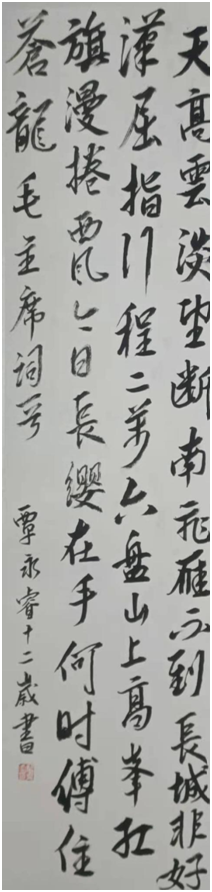 天高雲淡望斷南飛雁不到長城非好
漢屈指行程二萬六盤山上高峯紅
旗漫捲西風今日長纓在手何時縛住
蒼龍 毛主席詞一首 覃永睿十二歲書